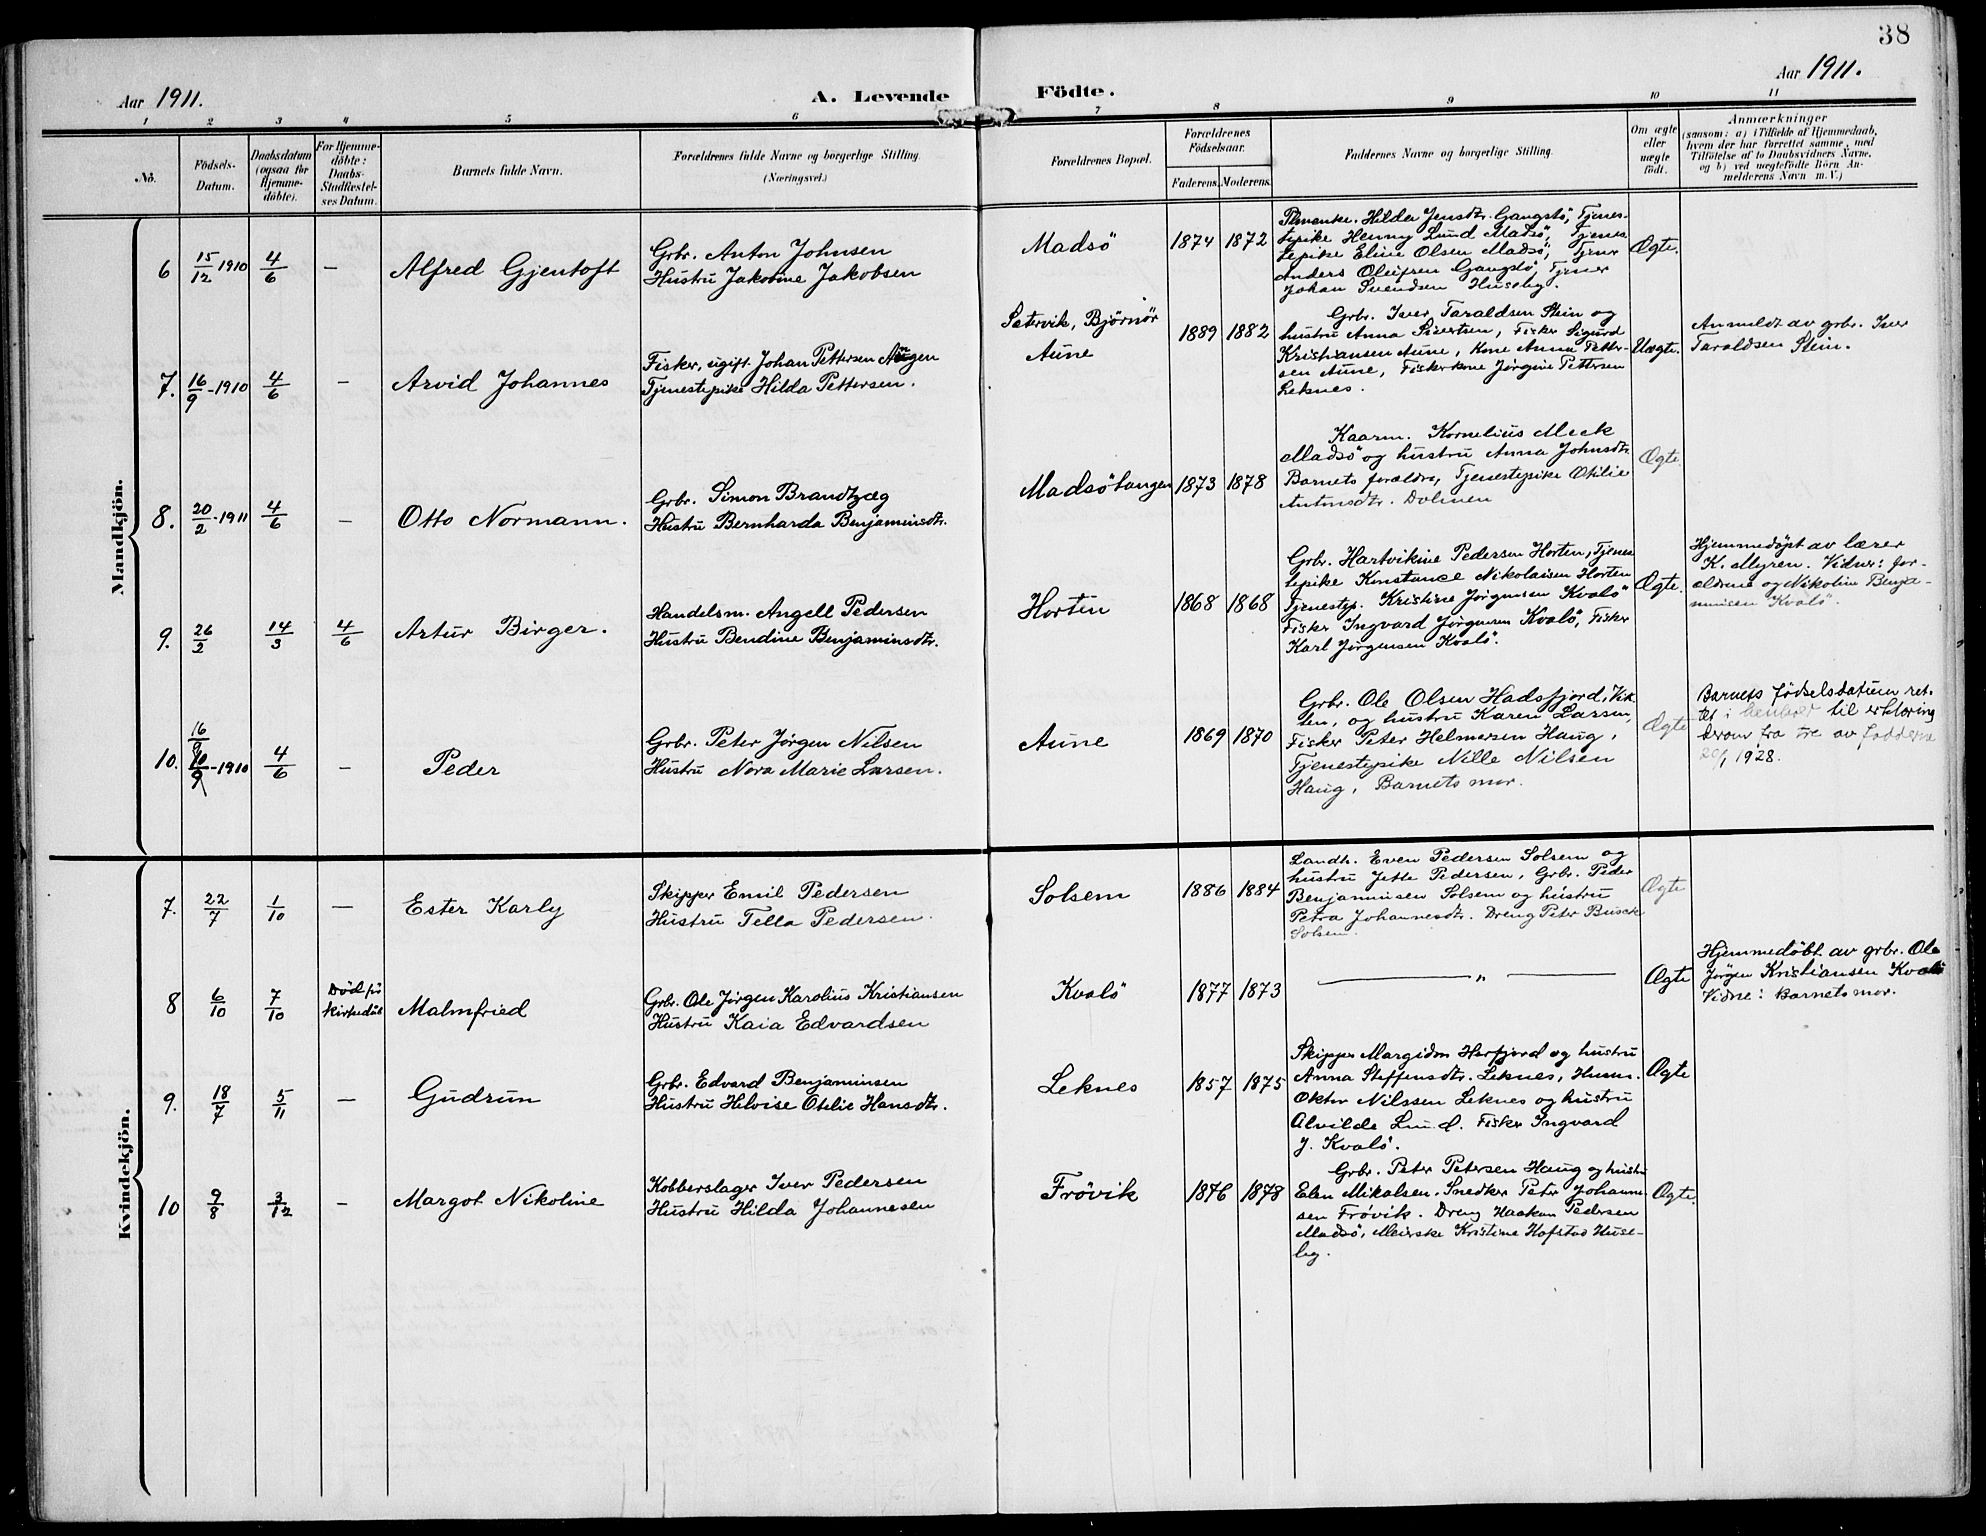 38
Aar 1911.
A. Levende Födte.
Aar 1911.
1 2 3 4 5 6 7 8 9 10 11
No.
Födsels-
Datum.
Daabsdatum
(ogsaa for
Hjemme-
døbte).
For Hjemme-
döbte:
Daabs-
Stadfæstel-
ses Datum.
Barnets fulde Navn.
Forældrenes fulde Navne og borgerlige Stilling.
(Næringsvei.)
Forældrenes Bopæl.
Forældrenes
Födselsaar.
Faderens. Moderens.
Faddernes Navne og borgerlige Stilling.
Om ægte
eller
uægte
födt.
Anmærkninger
(saasom: a) i Tilfælde af Hjemmedaab,
hvem der har forrettet samme, med
Tilföielse af to Daabsvidners Navne,
og b) ved uægtefödte Börn An-
melderens Navn m. V.)
Mandkjön.
6 15/12 1910 4/6 — Alfred Gjentoft
Grbr. Anton Johnsen
Hustru Jakobine Jakobsen
Madsö 1874 1872
Hilda Jensdtr. Gangstö, Tjenes-
tepike Henny Lund Madsö, Tjenes
tepike Eline Olsen Madsö, Tjener
Anders Gangstö, Tjener
Johan Svendsen Huseby.
Ægte.
7. 16/9 - 1910 4/6 — Arvid Johannes
Fisker, ugift Johan Pettersen
Tjenestepike Hilda Pettersen.
Sætervik, Bjørnör
Aune
1889 1882
Grbr. Iver Taraldsen Stein og
hustru Anna Sivertsen, Fisker Sigurd
Kristiansen Aune, Kone Anna Petter-
sen Aune, Fiskerkone Jørgine Pettersen
Leknes.
Uægte.
Anmeldt av grbr. Iver
Taraldsen Stein.
8. 20/2 - 1911 4/6 — Otto Normann.
Grbr. Simon Brandtzæg
Hustru Bernharda Benjaminsdtr.
Madsötangen 1873 1878
Kaarm. Kornelius Meek
Madsö og hustru Anna Johnsdtr.
Barnets forældre, Tjenestepike Otilie
Antonsdtr. Dolmen
Ægte
9. 26/2 14/3 4/6 Artur Birger.
Handelsm. Angell Pedersen
Hustru Bendine Benjaminsdtr.
Horten 1868 1868
Grbr. Hartvikine Pedersen Horten, Tjenes
tepike Konstance Nikolaisen Horten
Tjenestep. Kristine Jørgensen Kvalö
Fisker Ingvard Jørgensen Kvalö, Fisker
Karl Jørgensen Kvalö.
Ægte.
Hjemmedøpt av lærer
K. Myren. Vidner: for-
ældrene og Nikoline Benja-
minsen Kvalö.
10. 16/9 10/9 - 1910 4/6 — Peder
Grbr. Peter Jørgen Nilsen
Hustru Nora Marie Larsen.
Aune 1869 1870
Grbr. Ole Olsen Hadsfjord, Vik-
ten, og hustru Karen Larsen,
Fisker Peter Helmersen Haug,
Tjenestepike Nille Nilsen
Haug, Barnets mor.
Ægte
Barnets fødselsdatum ret-
tet i henhold til erklæring
herom fra tre av fadderne
20/1 1928.
Kvindekjön.
7. 22/7 1/10 — Ester Karly
Skipper Emil Pedersen
Hustru Tella Pedersen.
Solsem 1886 1884
Landh. Even Pedersen Solsem og
hustru Jette Pedersen, Grbr. Peder
Benjaminsen Solsem og hustru
Petra Johannesdtr. Dreng Peter Busck
Solsem.
Ægte
8 6/10 7/10 Død før
kirkedåb Malmfried
Grbr. Ole Jørgen Karolius Kristiansen
Hustru Kaia Edvardsen
Kvalö 1877 1873 — „ — Ægte
Hjemmedöbt av grbr. Ole
Jørgen Kristiansen Kvalö
Vidne: Barnets mor.
9. 18/7 5/11 — Gudrun
Grbr. Edvard Benjaminsen
Hustru Helvise Otelie Hansdtr.
Leknes 1857 1875
Skipper Margidon Herfjord og hustru
Anna Steffensdtr. Leknes, Husm.
Oktav Nilssen Leknes og hustru
Alvilde Lund. Fisker Ingvard
J. Kvalö.
Ægte
10 9/8 3/12 — Margot Nikoline
Kobberslager Iver Pedersen
Hustru Hilda Johannesen
Frövik 1876 1878
Grbr. Peter Petersen Haug og hustru
Elen Mikalsen. Snedker Peter Johanne-
sen Frövik. Dreng Haakon Pedersen
Madsö, Meierske Kristine Hofstad Huse-
by.
Ægte.